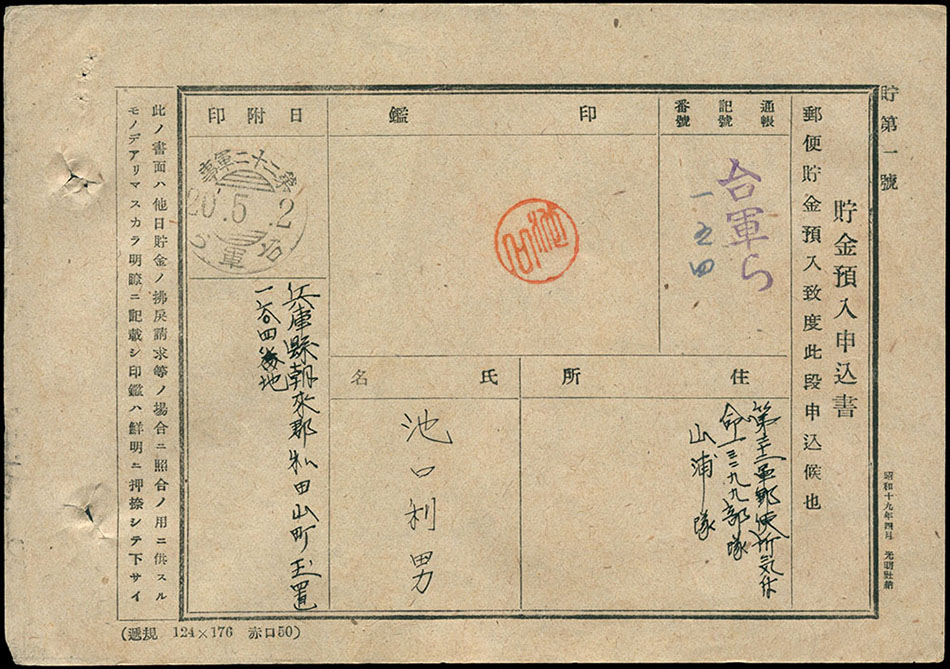 貯第一號
貯金預入申込書
郵便貯金預入致度此段申込候也
昭和十九年四月 光明社納
通帳
記號
番號
台軍ら
一五四
印鑑
日附印
第二十二軍事
20.5.2
台軍ら
住所
山浦隊
氏名
池口利男
兵庫縣朝來郡和田山町玉置
此ノ書面ハ他日貯金ノ拂戻請求等ノ場合ニ照合ノ用ニ供スル
モノデアリマスカラ明瞭ニ記載シ印鑑ハ鮮明ニ押捺シテ下サイ
(遞規 124×176 赤口50)